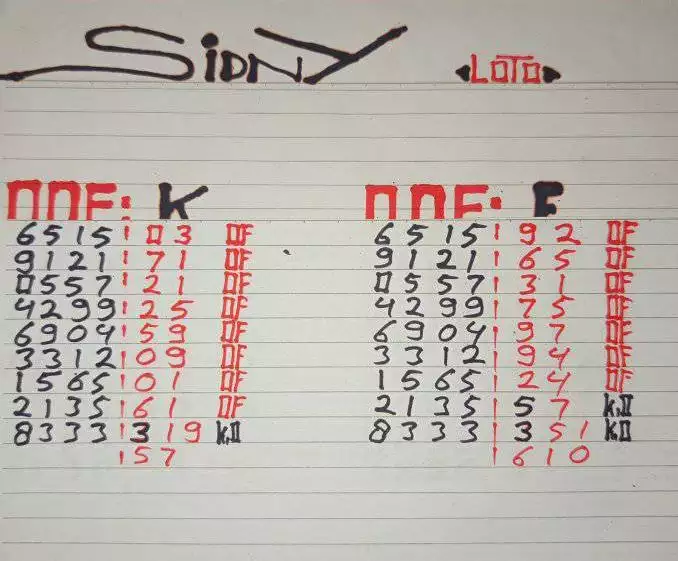 SIDNY
LOTO
DDF: K
6515 03 OF
9121 71 OF
0557 21 OF
4299 25 OF
6904 59 OF
3312 09 OF
1565 01 OF
2135 61 OF
8333 319 K.O
157
DDF: F
6515 92 OF
9121 65 OF
0557 31 OF
4299 75 OF
6904 97 OF
3312 94 OF
1565 24 OF
2135 57 K.O
8333 351 K.O
610